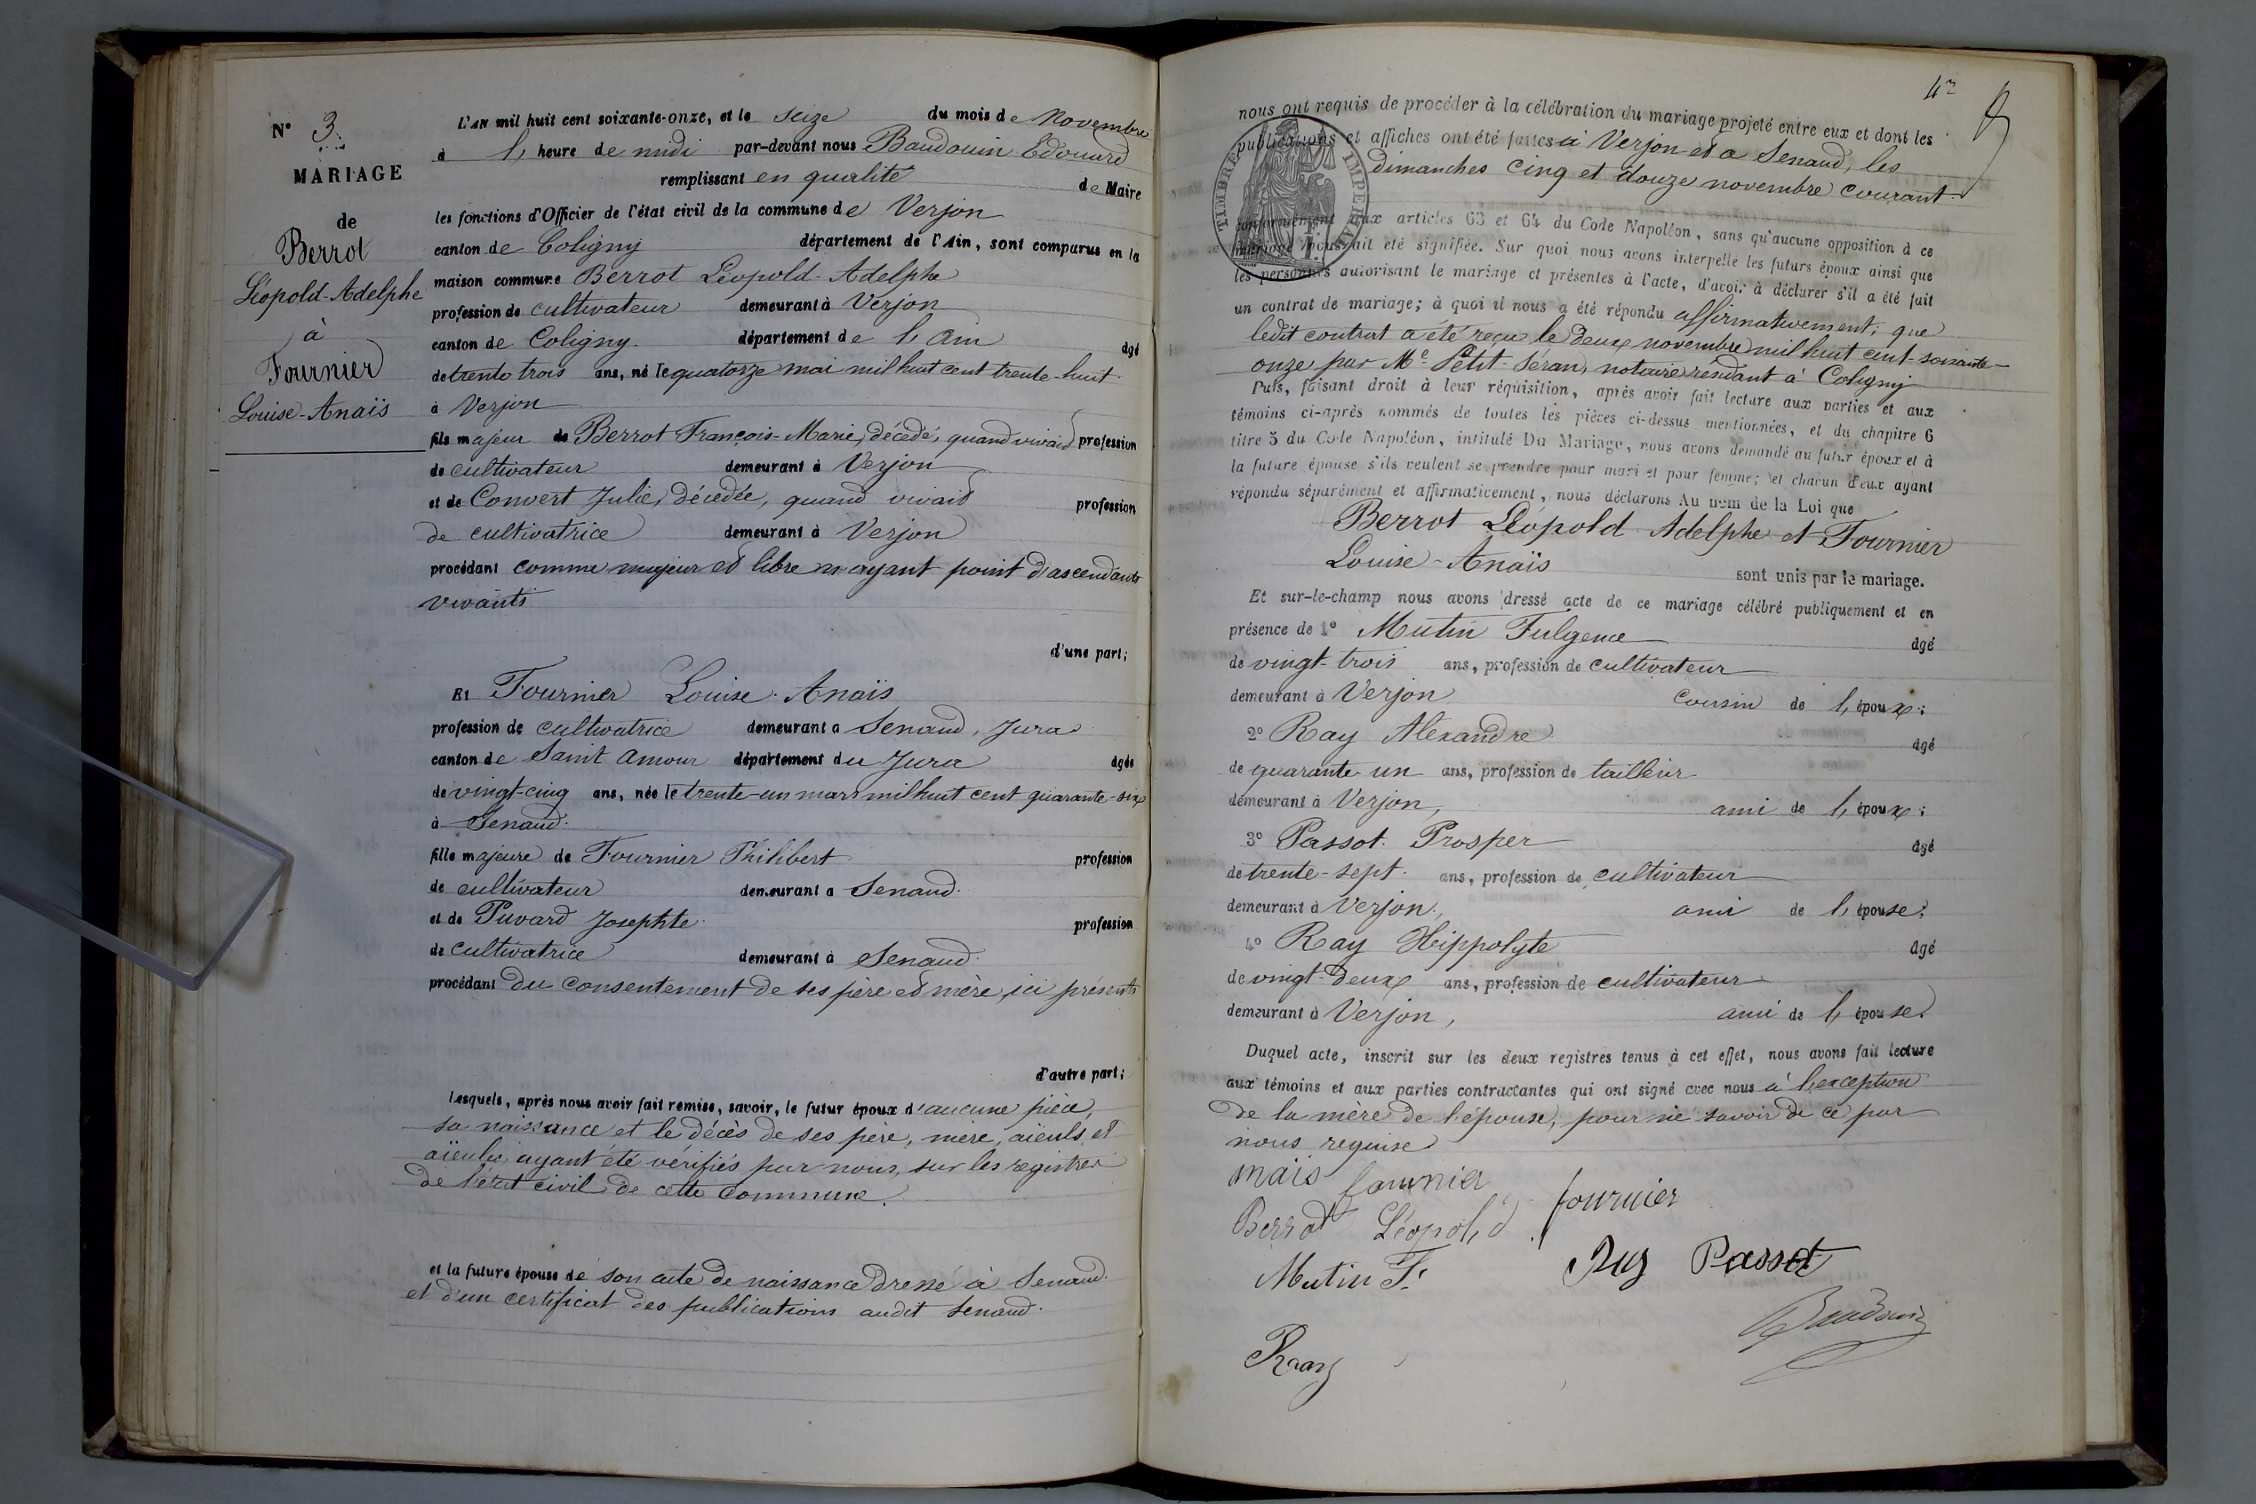 N° 3.
MARIAGE
de
Berrot
Léopold-Adelphe
à
Fournier
Louise-Anaïs
L'AN mil huit cent soixante-onze, et le seize du mois de Novembre
à l, heure de midi par-devant nous Baudouin Edouard
remplissant en qualité de Maire
les fonctions d'Officier de l'état civil de la commune de Verjon
canton de Coligny département de l'Ain, sont comparus en la
maison commune Berrot Léopold-Adelphe
profession de cultivateur demeurant à Verjon
canton de Coligny. département de l, Ain âgé
de trente trois ans, né le quatorze mai mil huit cent trente-huit
à Verjon
fils majeur de Berrot François-Marie, décédé, quand vivait profession
de cultivateur demeurant à Verjon
et de Convert Julie, décédée, quand vivait profession
de cultivatrice demeurant à Verjon
procédant comme majeur et libre n'ayant point d'ascendants
vivants
d'une part;
Et Fournier Louise-Anaïs
profession de cultivatrice demeurant à Senaud, Jura
canton de Saint Amour département du Jura âgée
de vingt-cinq ans, née le trente-un mars mil huit cent quarante-six
à Senaud.
fille majeure de Fournier Philibert profession
de cultivateur demeurant à Senaud.
et de Puvard Josephte profession
de cultivatrice demeurant à Senaud.
procédant du consentement de ses père et mère, ici présents
d'autre part;
Lesquels, après nous avoir fait remise, savoir, le futur époux d'aucune pièce,
sa naissance et le décès de ses père, mère, aïeuls et
aïeules, ayant été vérifiés par nous, sur les registres
de l'état civil de cette commune.
et la future épouse de son acte de naissance dressé à Senaud.
et d'un certificat des publications audit Senaud.
4
nous ont requis de procéder à la célébration du mariage projeté entre eux et dont les
publications et affiches ont été faites à Verjon et à Senaud, les
dimanches cinq et douze novembre courant
TIMBRE IMPERIAL
conformément aux articles 63 et 64 du Code Napoléon, sans qu'aucune opposition à ce
mariage nous ait été signifiée. Sur quoi nous avons interpellé les futurs époux ainsi que
les personnes autorisant le mariage et présentes à l'acte, d'avoir à déclarer s'il a été fait
un contrat de mariage; à quoi il nous a été répondu affirmativement, que
ledit contrat a été reçu le deux novembre mil huit cent soixante-
onze par Me Petit-Séran, notaire résidant à Coligny
Puis, faisant droit à leur réquisition, après avoir fait lecture aux parties et aux
témoins ci-après nommés de toutes les pièces ci-dessus mentionnées, et du chapitre 6
titre 5 du Code Napoléon, intitulé Du Mariage, nous avons demandé au futur époux et à
la future épouse s'ils veulent se prendre pour mari et pour femme; et chacun d'eux ayant
répondu séparément et affirmativement, nous déclarons Au nom de la Loi que
Berrot Léopold-Adelphe et Fournier
Louise-Anaïs sont unis par le mariage.
Et sur-le-champ nous avons dressé acte de ce mariage célébré publiquement et en
présence de 1° Mutin Fulgence âgé
de vingt-trois ans, profession de cultivateur
demeurant à Verjon cousin de l, époux;
2° Ray Alexandre âgé
de quarante-un ans, profession de tailleur
demeurant à Verjon, ami de l, époux;
3° Passot Prosper âgé
de trente-sept ans, profession de cultivateur
demeurant à Verjon, ami de l, épouse;
4° Ray Hippolyte âgé
de vingt-deux ans, profession de cultivateur
demeurant à Verjon, ami de l, épouse.
Duquel acte, inscrit sur les deux registres tenus à cet effet, nous avons fait lecture
aux témoins et aux parties contractantes qui ont signé avec nous à l'exception
de la mère de l'épouse, pour ne savoir de ce par
nous requise
anaïs fournier
fournier
Berrot Léopold
Mutin F. Ray Passot
Baudouin
Ray